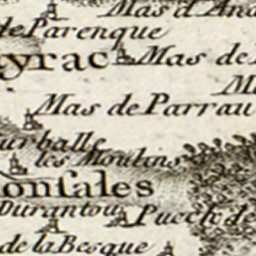 Mas d'An
de Parenque
yrac Mas de
M
Mas de Parrau
urballe
les Moulins
onſales
Durantou Puech de
de la Besque